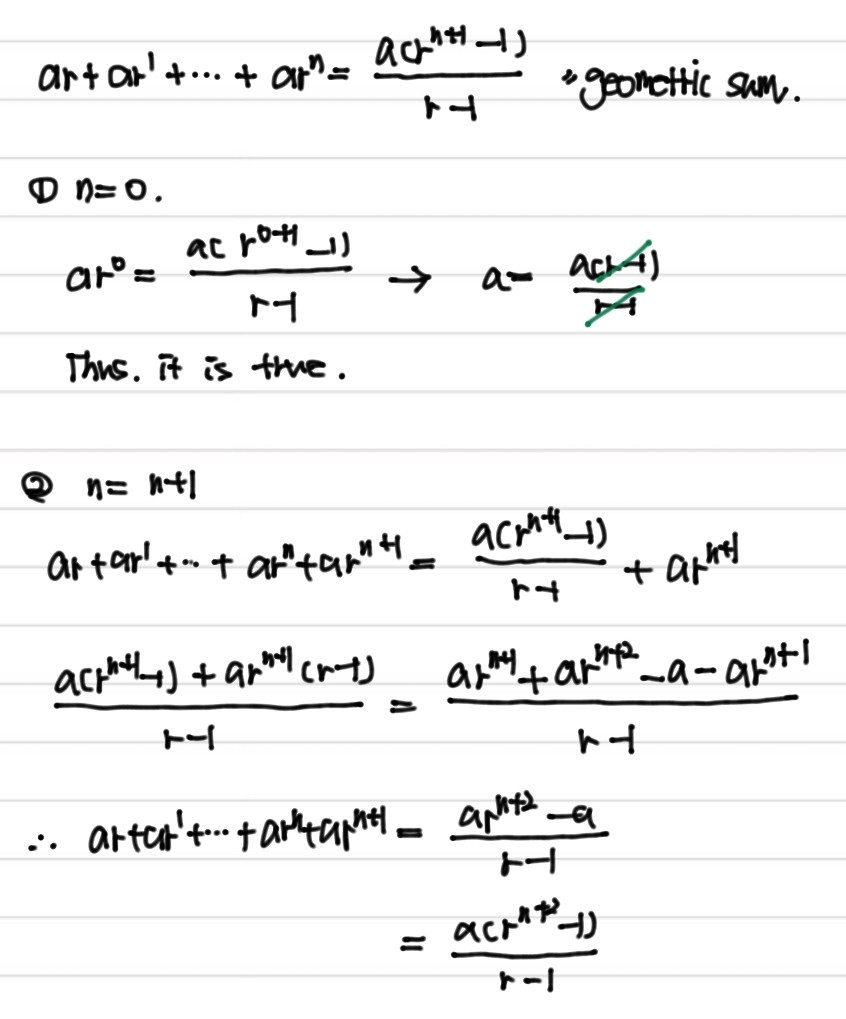 ar + ar¹ + ⋯ + arⁿ = a(rⁿ⁺¹ − 1) / (r − 1) geomettic sum.
① n = 0.
ar⁰ = a(r⁰⁺¹ − 1) / (r − 1) → a = a(r − 1) / (r − 1)
Thus. it is true.
② n = n+1
ar + ar¹ + ⋯ + arⁿ + arⁿ⁺¹ = a(rⁿ⁺¹ − 1) / (r − 1) + arⁿ⁺¹
(a(rⁿ⁺¹ − 1) + arⁿ⁺¹(r − 1)) / (r − 1) = (arⁿ⁺¹ + arⁿ⁺² − a − arⁿ⁺¹) / (r − 1)
∴ ar + ar¹ + ⋯ + arⁿ + arⁿ⁺¹ = (arⁿ⁺² − a) / (r − 1)
= a(rⁿ⁺² − 1) / (r − 1)